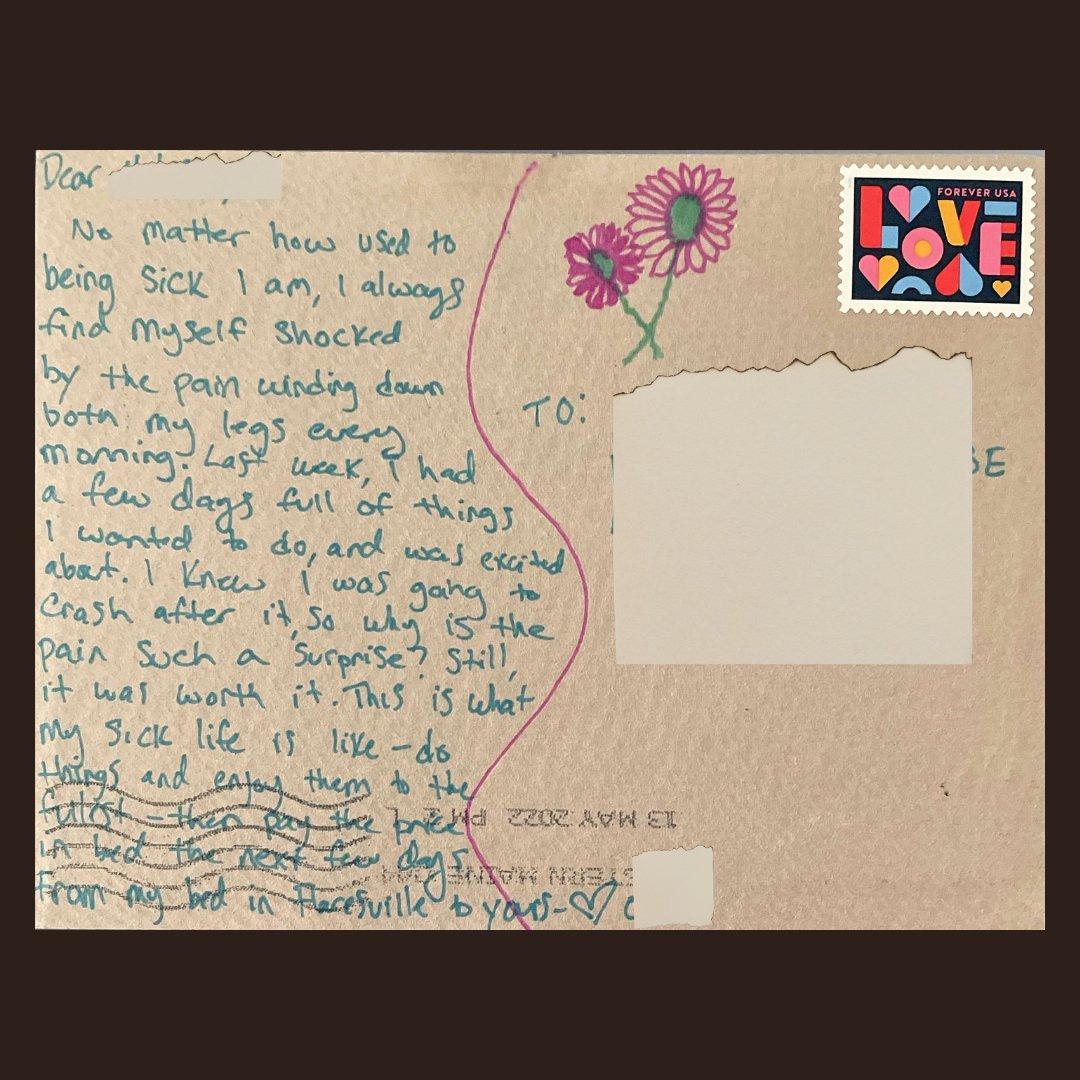 Dear
No matter how used to
being sick I am, I always
find myself shocked
by the pain winding down
both my legs every
morning. Last week, I had
a few days full of things
I wanted to do, and was excited
about. I knew I was going to
crash after it, so why is the
pain such a surprise? Still,
it was worth it. This is what
my sick life is like - do
things and enjoy them to the
fullest - then pay the price
in bed the next few days
From my bed in Placesville to yours - ♡
FOREVER USA
LOVE
TO:
SE
13 MAY 2022 PM 2 L
STERN MAINE